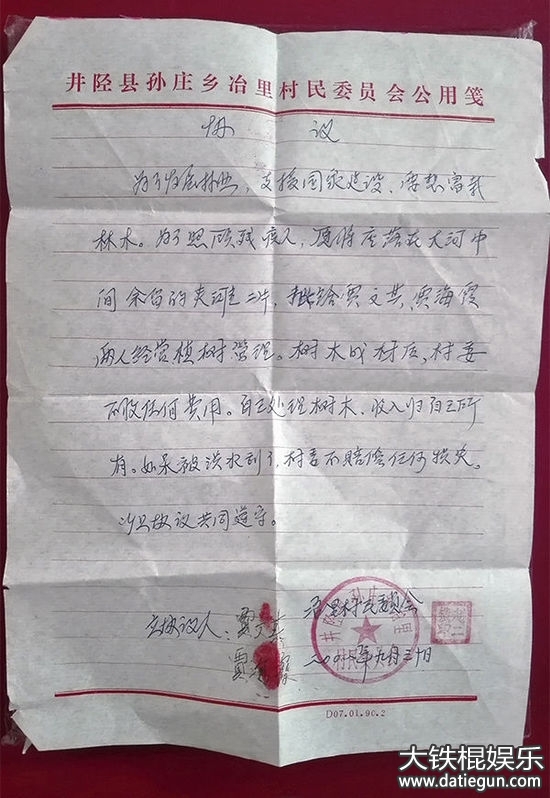 井陉县孙庄乡冶里村民委员会公用笺
协 议
为了发展林业，支援国家建设、
林木。为了照顾残疾人，愿将座落在大河中
间余留的夹河 二件，批给贾文其、贾海霞
两人经营植树管理。树木成材后，村委
不收任何费用。自己处理树木、收入归自己所
有。如果被洪水刮了，村委不赔偿任何损失。
以只协议共同遵守。
冶里村民委员会
立协议人：贾文其
贾海霞
年九月三十日
D07.01.90.2
大铁棍娱乐
www.datiegun.com